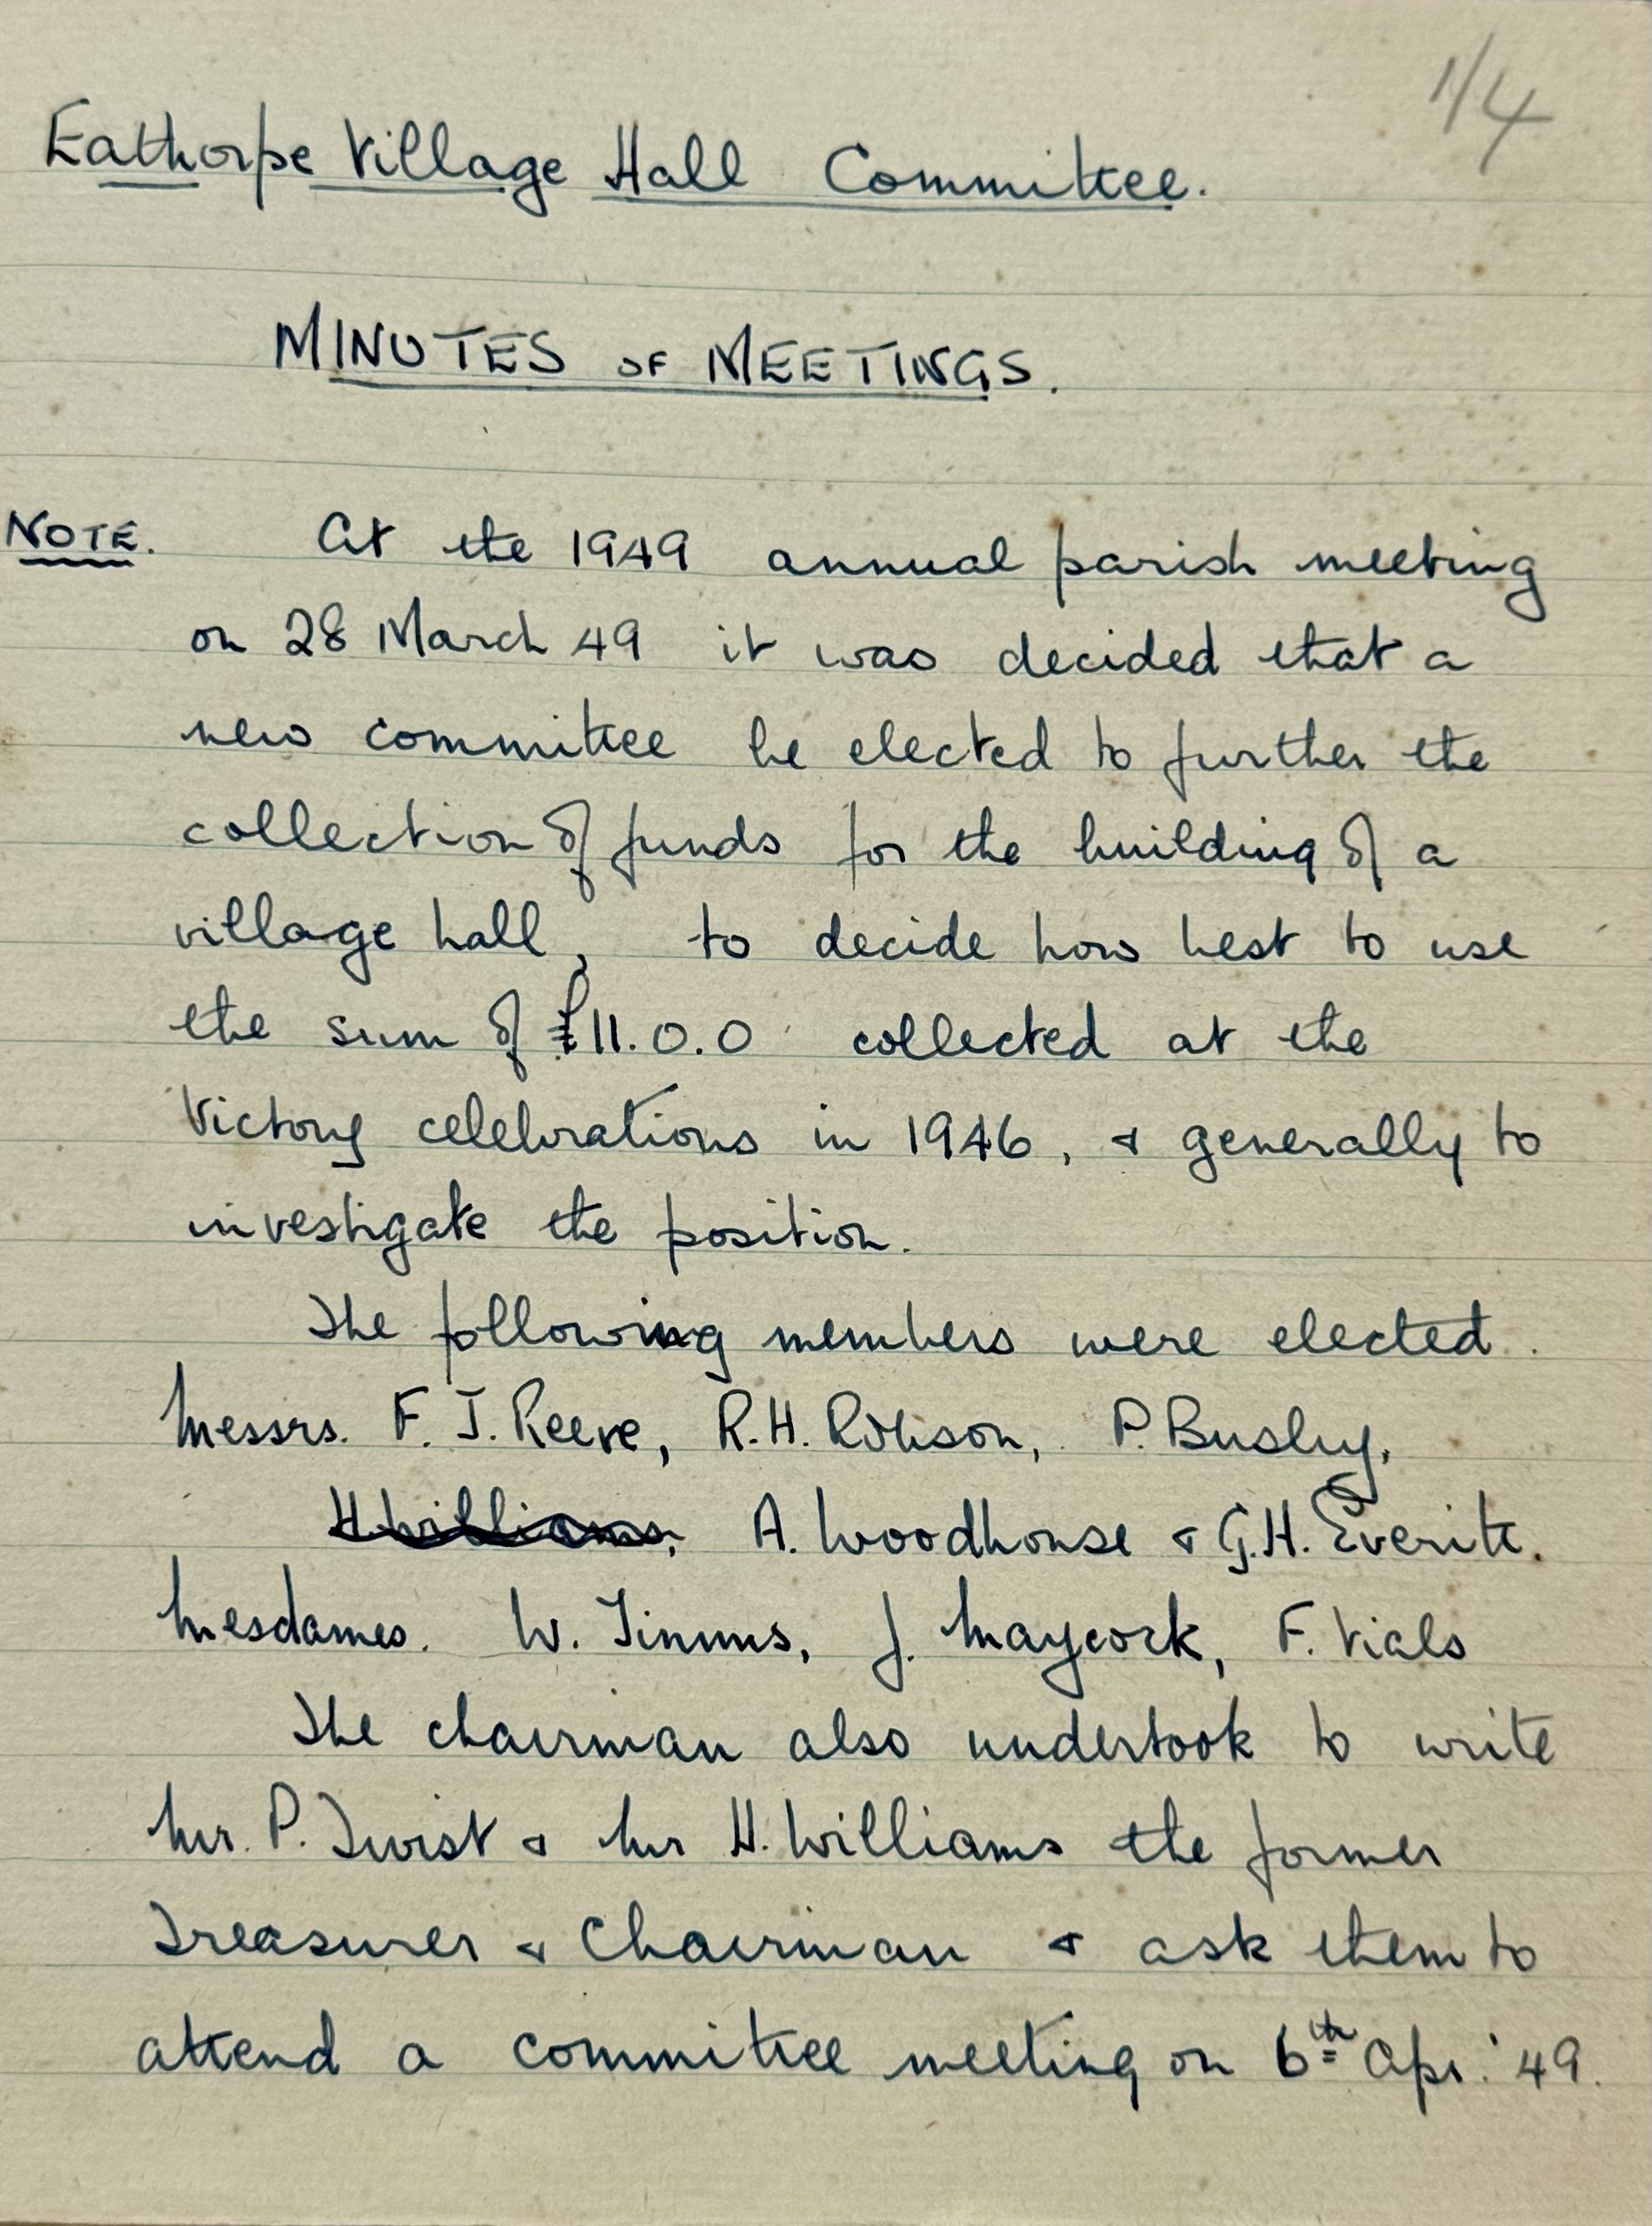 1/4
Eathorpe Village Hall Committee.
MINUTES OF MEETINGS.
NOTE. At the 1949 annual parish meeting
on 28 March 49 it was decided that a
new committee be elected to further the
collection of funds for the building of a
village hall, to decide how best to use
the sum of £11.0.0 collected at the
Victory celebrations in 1946, & generally to
investigate the position.
The following members were elected.
Messrs. F. J. Reeve, R.H. Robson, P. Busby,
H Williams, A. Woodhouse & G.H. Everitt.
Mesdames. W. Timms, J. Maycock, F. Vials
The chairman also undertook to write
Mr. P. Twist & Mr H. Williams the former
Treasurer & Chairman & ask them to
attend a committee meeting on 6th Apr. '49.